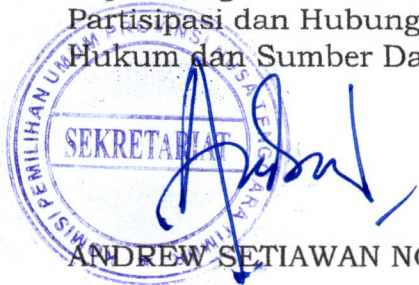 Partisipasi dan Hubung
Hukum dan Sumber Da
KOMISI PEMILIHAN UMUM PROVINSI NUSA TENGGARA TIMUR
SEKRETARIAT
ANDREW SETIAWAN NO